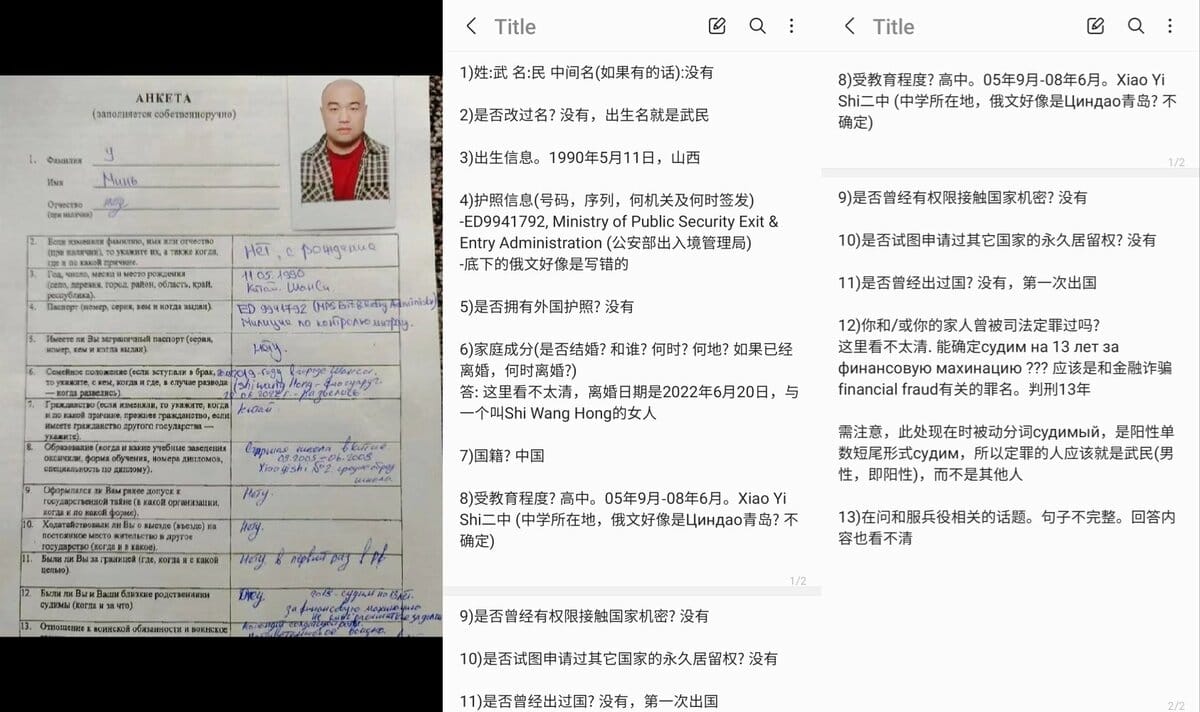 АНКЕТА
(заполняется собственноручно)
1. Фамилия У
Имя Минь
Отчество нету
(при наличии)
2. Если изменяли фамилию, имя или отчество (при наличии), то укажите их, а также когда, где и по какой причине.
Нет, с рождения
3. Год, число, месяц и место рождения (село, деревня, город, район, область, край, республика).
11 05. 1990
Китай. ШанСи
4. Паспорт (номер, серия, кем и когда выдан).
ED 9941792
Милиция по контролю
5. Имеете ли Вы заграничный паспорт (серия, номер, кем и когда выдан).
Нету.
6. Семейное положение (если вступали в брак, то укажите, с кем, когда и где, в случае развода — когда развелись).
7. Гражданство (если изменяли, то укажите, когда и по какой причине, прежнее гражданство, если имеете гражданство другого государства — укажите).
Китай
8. Образование (когда и какие учебные заведения окончили, форма обучения, номера дипломов, специальность по диплому).
Старшая школа в Китае
09.2005 – 06.2008
школа.
9. Оформлялся ли Вам ранее допуск к государственной тайне (в какой организации, когда и по какой форме).
Нету.
10. Ходатайствовали ли Вы о выезде (въезде) на постоянное место жительство в другое государство (когда и в какое).
Нету.
11. Были ли Вы за границей (где, когда и с какой целью).
Нету в первый раз в
12. Были ли Вы и Ваши близкие родственники судимы (когда и за что)
судим на 13 лет.
за финансовую махинацию
13. Отношение к воинской обязанности и воинское
Title
1)姓:武 名:民 中间名(如果有的话):没有
2)是否改过名? 没有，出生名就是武民
3)出生信息。1990年5月11日，山西
4)护照信息(号码，序列，何机关及何时签发)
-ED9941792, Ministry of Public Security Exit &
Entry Administration (公安部出入境管理局)
-底下的俄文好像是写错的
5)是否拥有外国护照? 没有
6)家庭成分(是否结婚? 和谁? 何时? 何地? 如果已经
离婚，何时离婚?)
答: 这里看不太清，离婚日期是2022年6月20日，与
一个叫Shi Wang Hong的女人
7)国籍? 中国
8)受教育程度? 高中。05年9月-08年6月。Xiao Yi
Shi二中 (中学所在地，俄文好像是Циндао青岛? 不
确定)
1/2
9)是否曾经有权限接触国家机密? 没有
10)是否试图申请过其它国家的永久居留权? 没有
11)是否曾经出过国? 没有，第一次出国
Title
8)受教育程度? 高中。05年9月-08年6月。Xiao Yi
Shi二中 (中学所在地，俄文好像是Циндао青岛? 不
确定)
1/2
9)是否曾经有权限接触国家机密? 没有
10)是否试图申请过其它国家的永久居留权? 没有
11)是否曾经出过国? 没有，第一次出国
12)你和/或你的家人曾被司法定罪过吗?
这里看不太清. 能确定судим на 13 лет за
финансовую махинацию ??? 应该是和金融诈骗
financial fraud有关的罪名。判刑13年
需注意，此处现在时被动分词судимый，是阳性单
数短尾形式судим，所以定罪的人应该就是武民(男
性，即阳性)，而不是其他人
13)在问和服兵役相关的话题。句子不完整。回答内
容也看不清
2/2